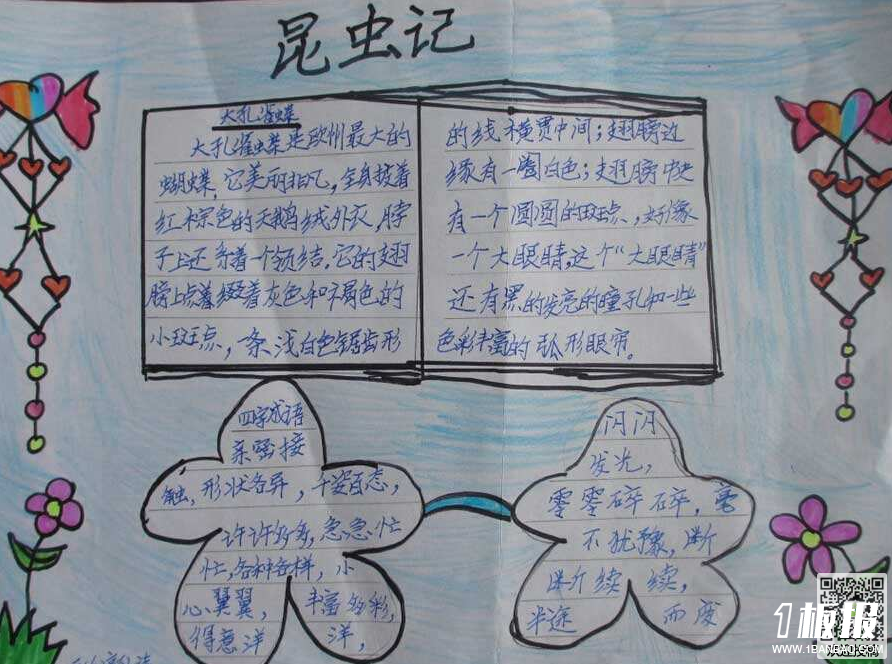 昆虫记
大孔雀蝶
大孔雀蝶是欧州最大的
蝴蝶,它美丽非凡,全身披着
红棕色的天鹅绒外衣,脖
子上还系着一个领结,它的翅
膀上点着缀着灰色和褐色的
小斑点,一条浅白色锯齿形
的线横贯中间;翅膀边
缘有一圈白色;翅膀中央
有一个圆圆的斑点,好像
一个大眼睛,这个“大眼睛”
还有黑的发亮的瞳孔和一些
色彩丰富的弧形眼帘。
四字成语
亲密接
触,形状各异,千姿百态,
许许多多,急急忙
忙,各种各样,小
心翼翼,丰富多彩,
得意洋洋,
闪闪
发光,
零零碎碎,毫
不犹豫,断
断续续,
半途而废
1板报
WWW.1BANBAO.COM